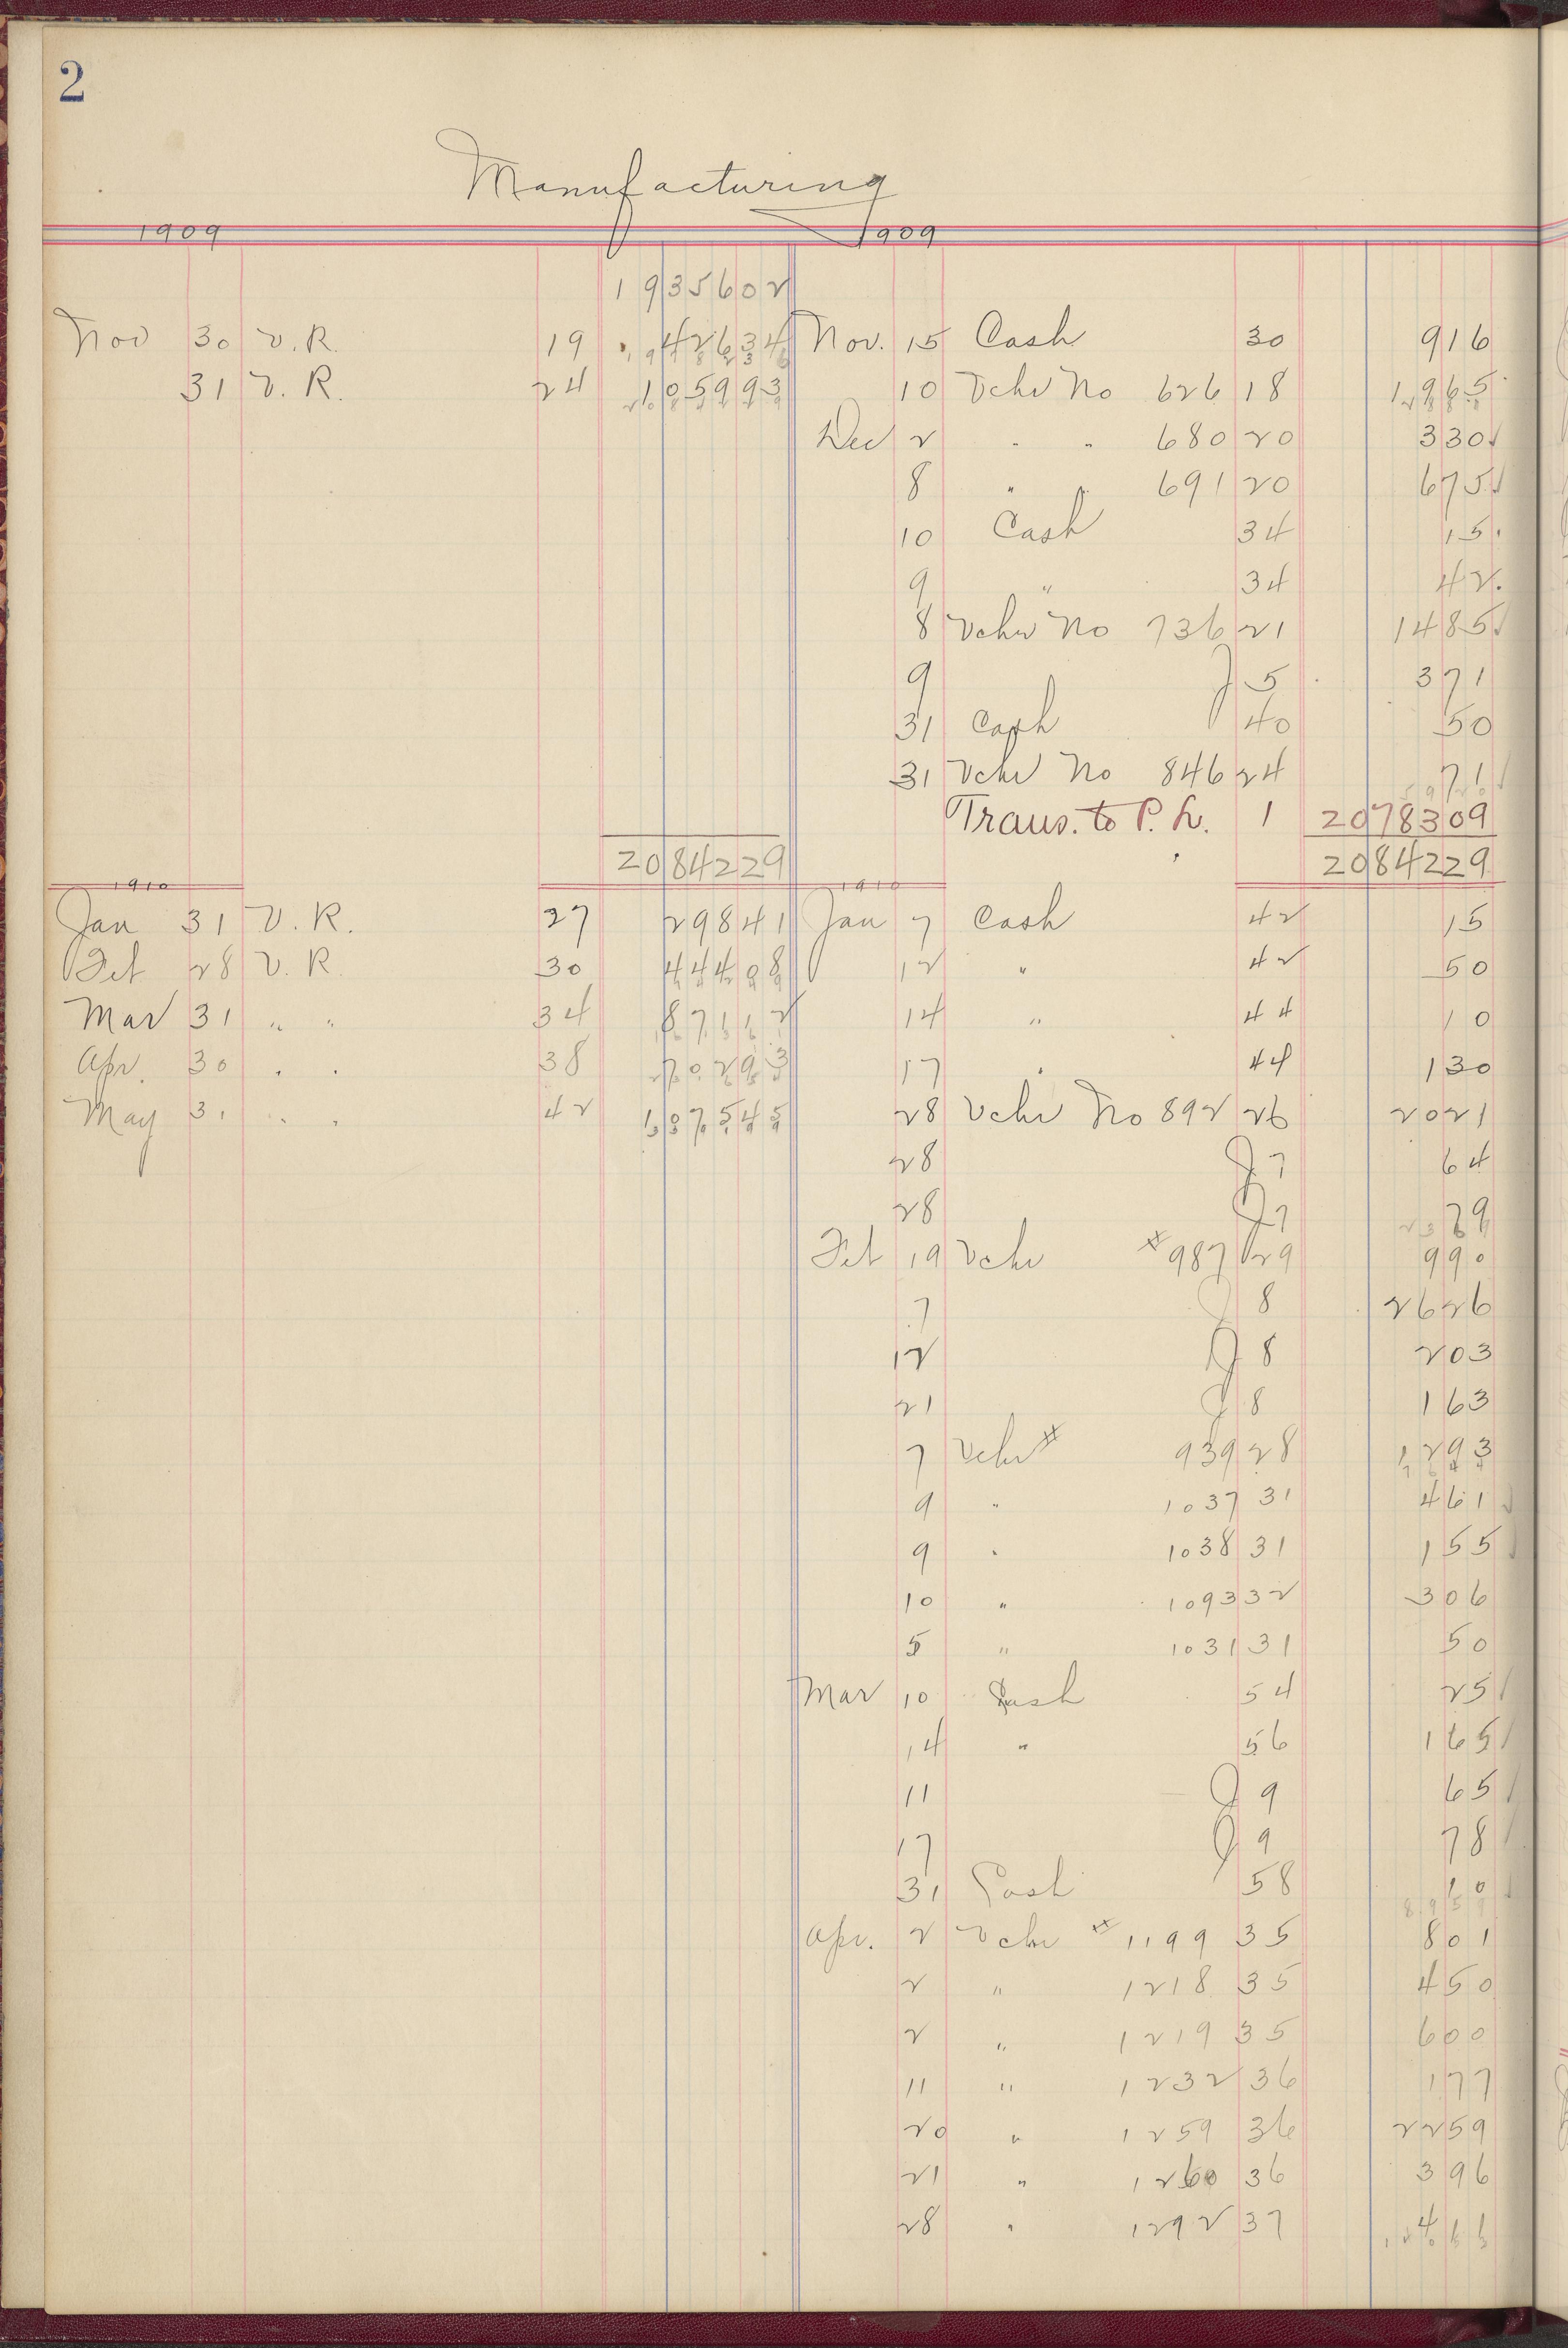 2
Manufacturing
1909 1909
1935602
Nov 30 V.R. 19 42634 Nov. 15 Cash 30 916
31 V.R. 24 105993 10 Vchr No 626 18 1965
Dec 2 " " 680 20 330
8 " " 691 20 675
10 Cash 34 15
9 " 34 42
8 Vchr No 736 21 1485
9 J 5 371
31 Cash 40 50
31 Vchr No 846 24 71
Trans. to P. L. 1 2078309
2084229 2084229
1910 1910
Jan 31 V.R. 27 29841 Jan 7 Cash 42 15
Feb 28 V.R. 30 44408 12 " 42 50
Mar 31 " " 34 87112 14 " 44 10
Apr. 30 " " 38 70293 17 " 44 130
May 31 " " 42 107545 28 Vchr No 892 26 2021
28 J 7 64
28 J 7 79
Feb 19 Vchr #987 29 990
7 J 8 2626
12 J 8 203
21 J 8 163
7 Vchr # 939 28 1293
9 " 1037 31 461
9 " 1038 31 155
10 " 1093 32 306
5 " 1031 31 50
Mar 10 Cash 54 25
14 " 56 165
11 J 9 65
17 J 9 78
31 Cash 58 10
Apr. 2 Vchr # 1199 35 801
2 " 1218 35 450
2 " 1219 35 600
11 " 1232 36 177
20 " 1259 36 2259
21 " 1260 36 396
28 " 1292 37 411